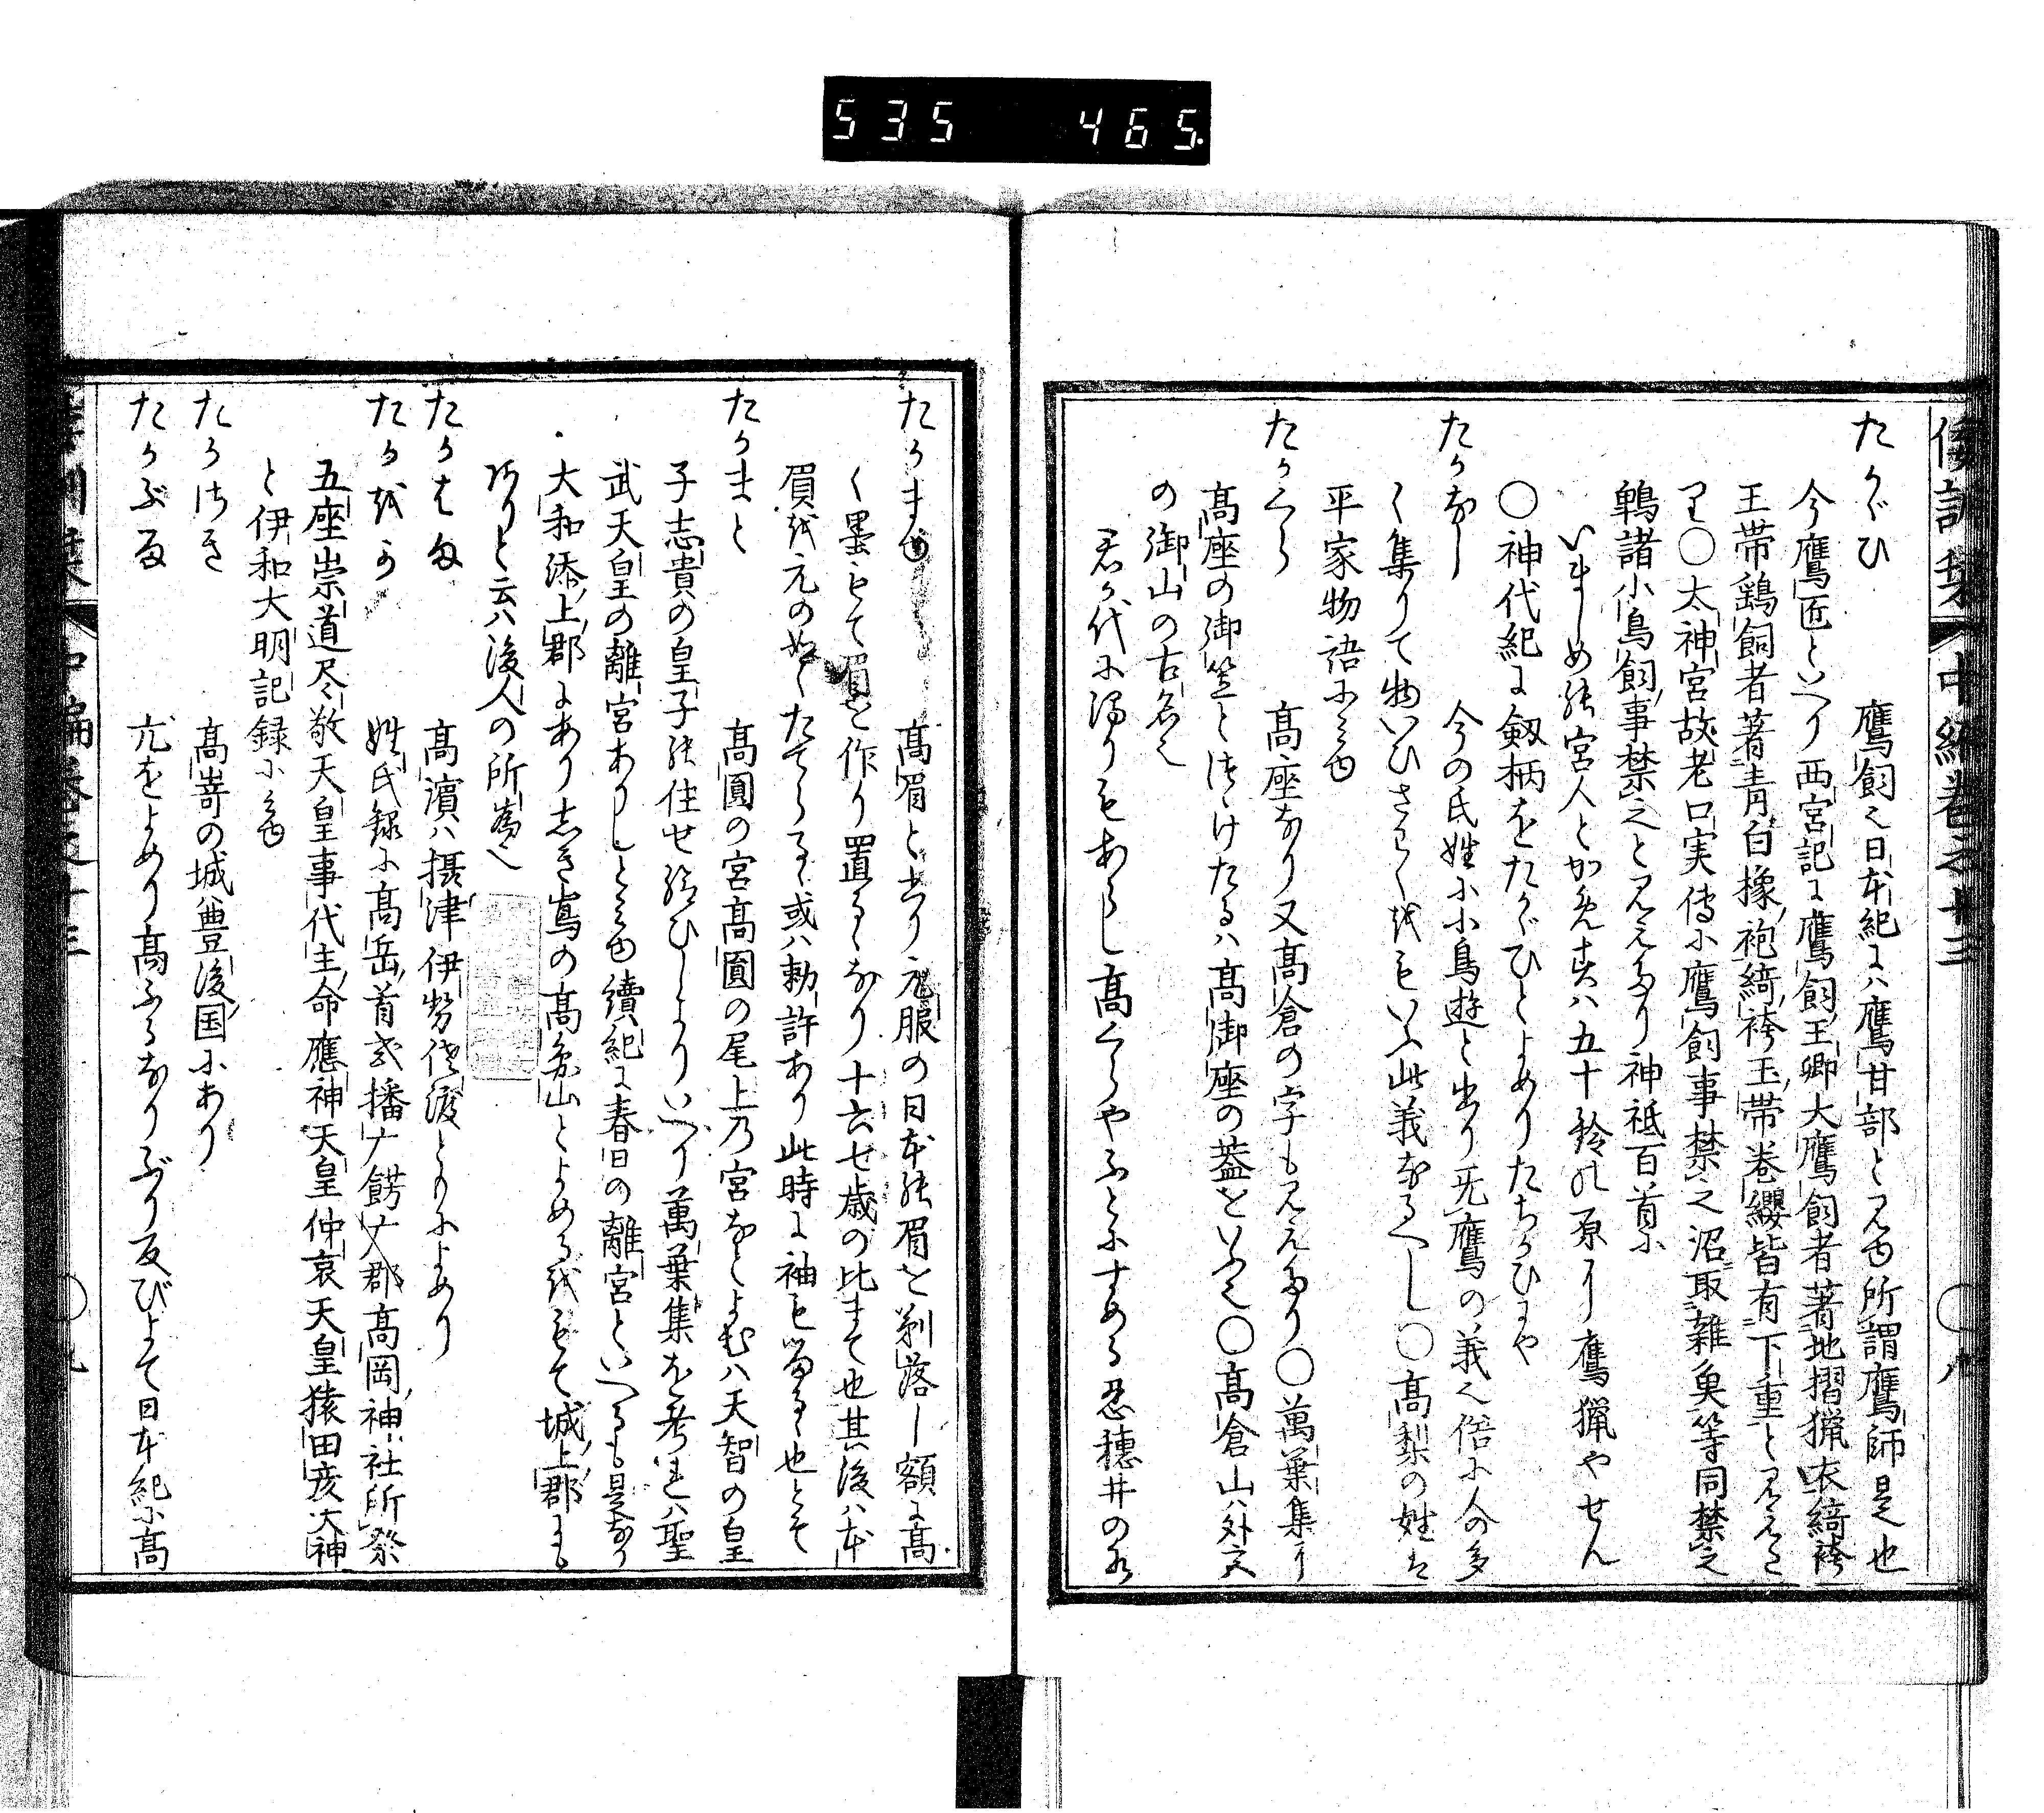 535 465
倭訓栞 中編巻之十三 〇九
たかゞひ 鷹飼也日本紀には鷹甘部と見ゆ所謂鷹師是也
今鷹匠といへり西宮記に鷹飼王卿大鷹飼者著地摺猟衣綺袴
玉帯鷂飼者著青白橡袍綺袴玉帯巻纓皆有下重と見えた
り〇太神宮故老口実伝に鷹飼事禁之沼取雑魚等同禁之
鶉諸小鳥飼事禁之と見えたり神祇百首に
いましめの宮人とかめすは五十鈴の原に鷹猟やせん
〇神代紀に剱柄をたかゞひとよめりたちかひにや
たかなし 今の氏姓に小鳥遊と出り旡鷹の義也俗に人の多
く集りて物いひさわくをもいふ此義なるへし〇高梨の姓は
平家物語にみゆ
たかくら 高座なり又高倉の字も見えたり〇萬葉集に
高座の御笠とつゝけたるは高御座の蓋をいふ也〇高倉山は外宮
の御山の古名也
君か代に濁りもあらし高くらやふとにすめる忍穂井の水
たかまゆ 高眉と書り元服の日本の眉を剃落し額に高
く墨もて眉を作り置るゝなり十六七歳の比まて也其後は本
眉を元の如くたてらるゝ或は勅許あり此時に袖も留る也とそ
たかまと 高圓の宮高圓の尾上乃宮なとよむは天智の皇
子志貴の皇子の住せ給ひしよりいへり萬葉集を考れは聖
武天皇の離宮ありしとみゆ續紀に春日の離宮といへるも是なり
大和添上郡にあり志き嶌の高圓山とよめるをもて城上郡にも
ありと云は後人の所為也
たかはま 高濱は摂津伊勢佐渡ともによめり
たかをか 姓氏録に高岳首或播ナ餝ナ郡高岡神社所祭
五座崇道尽敬天皇事代主命應神天皇仲哀天皇猿田彦大神
と伊和大明記録にみゆ
たかさき 高嵜の城は豊後国にあり
たかぶる 亢をよめり高ふるなりぶり反びよて日本紀に高
倭訓栞 中編巻之十三 〇九